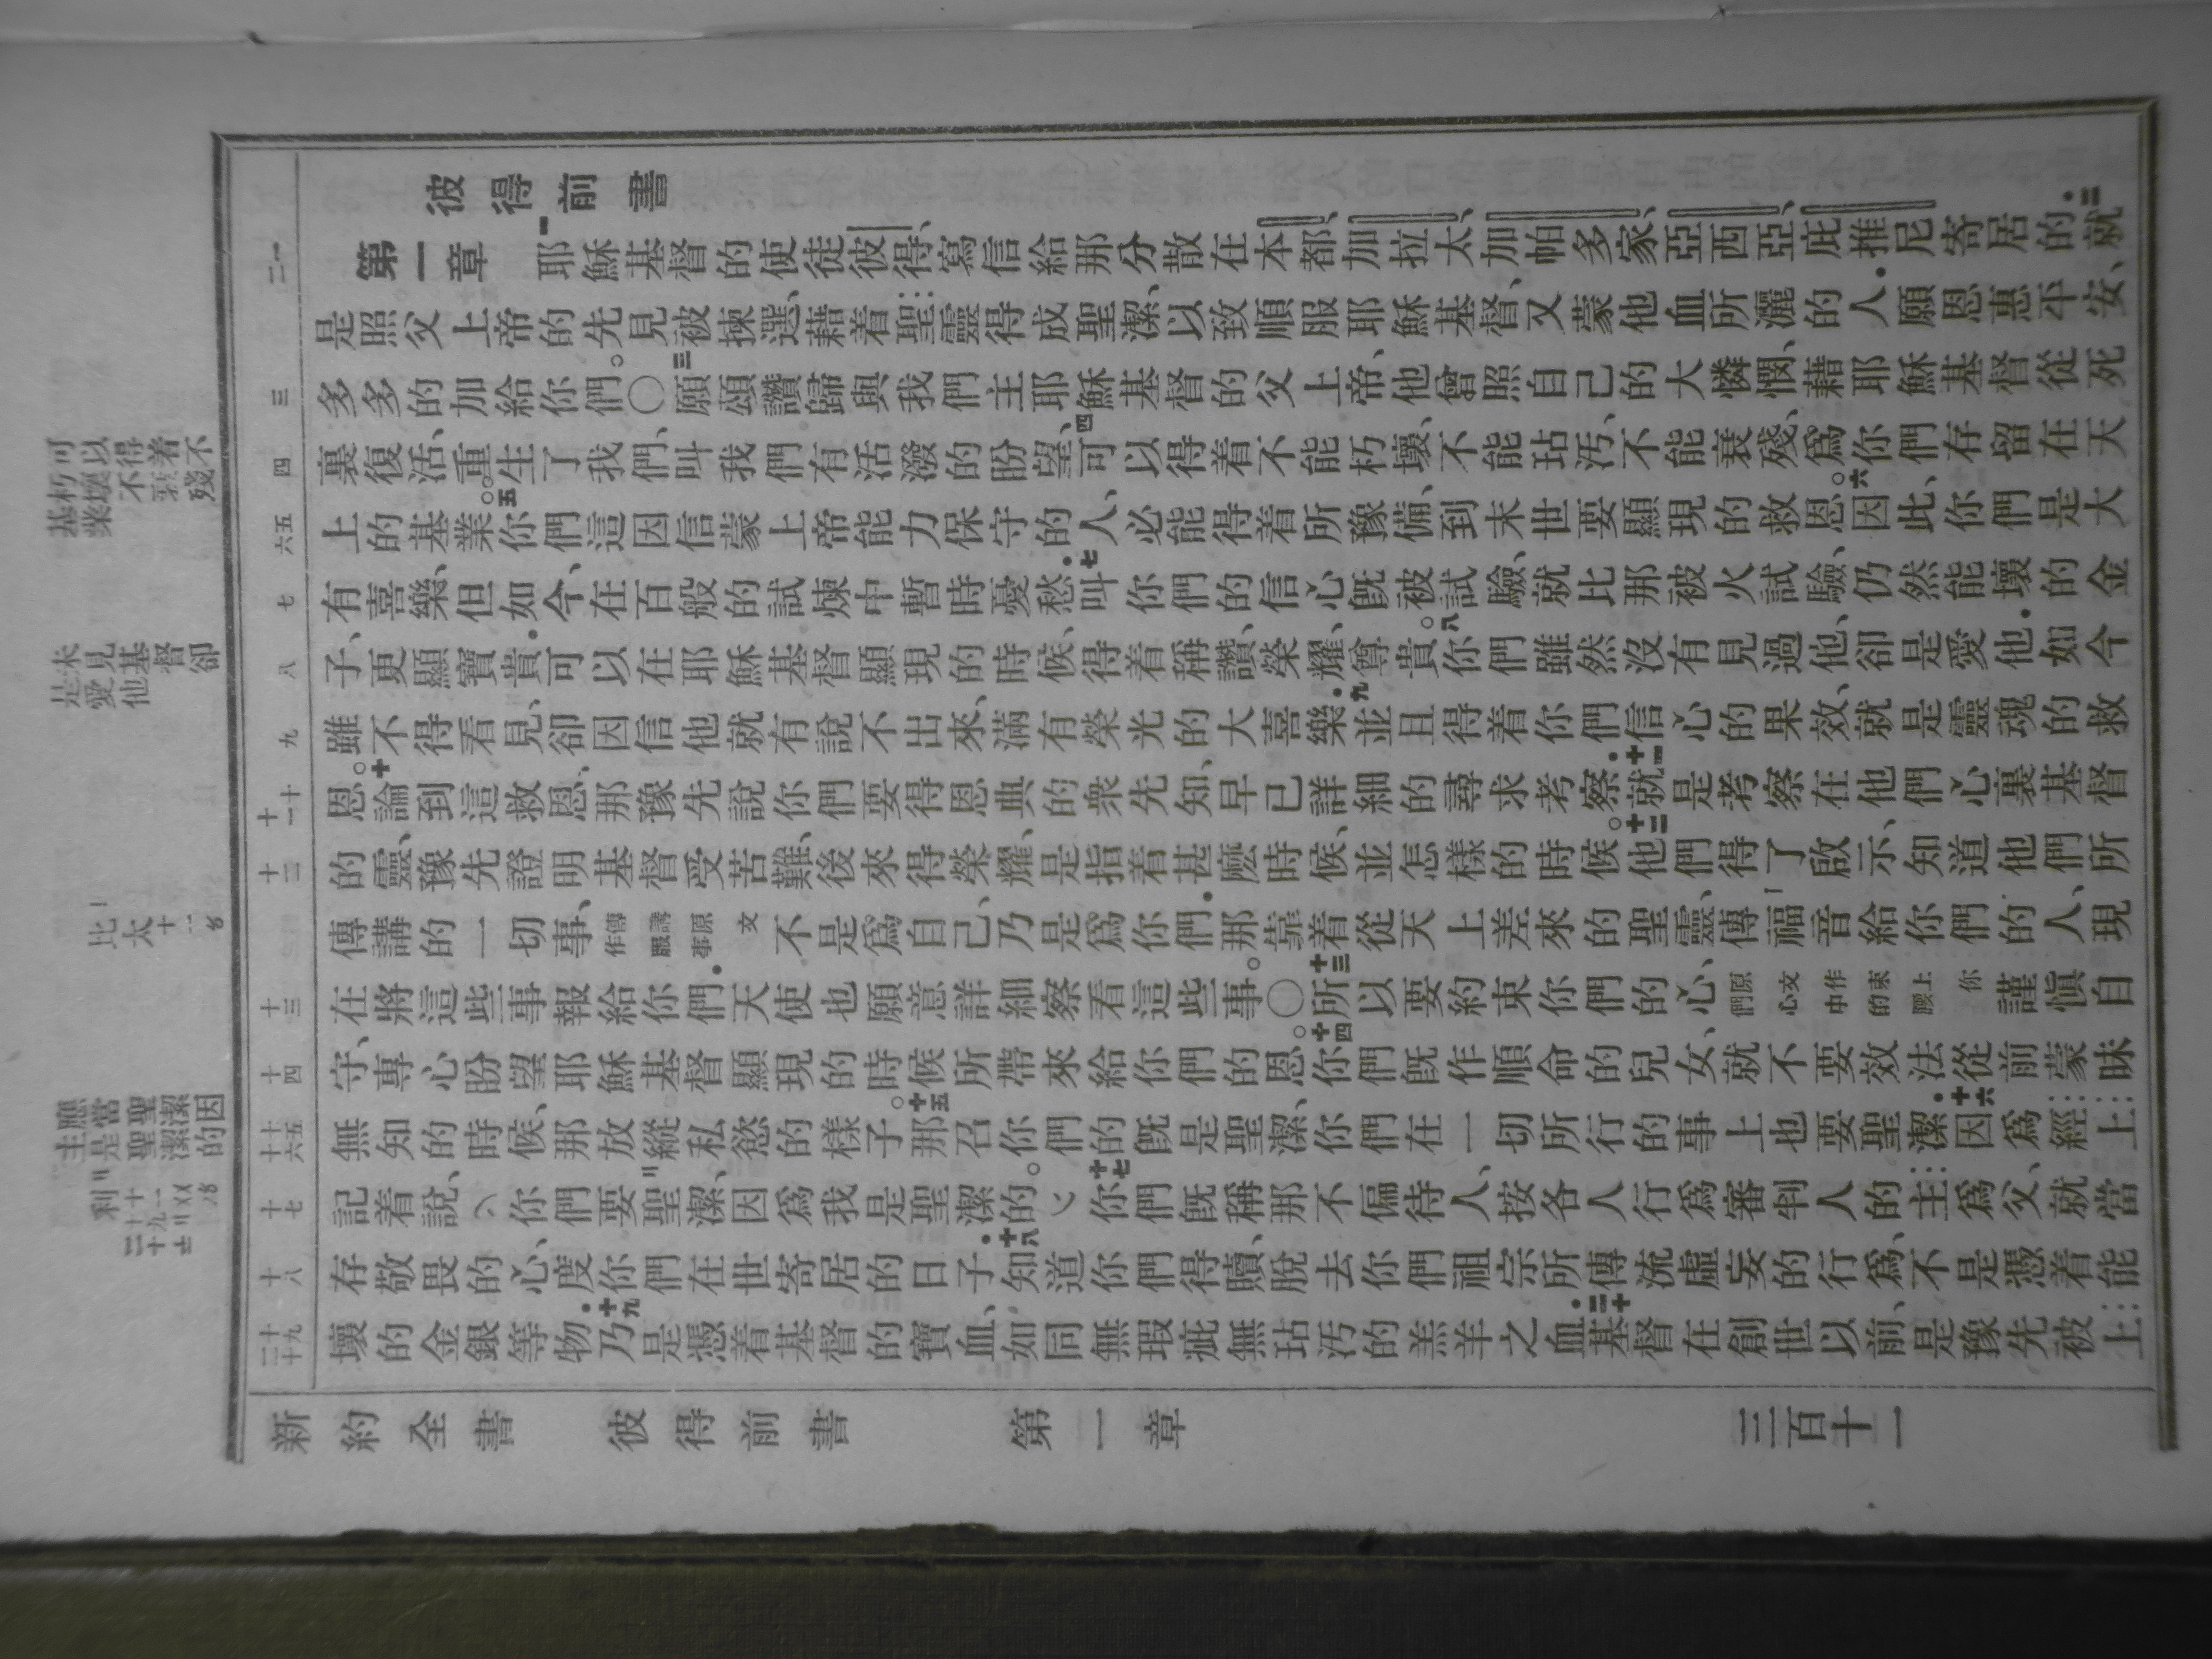 彼得前書
第一章 一耶穌基督的使徒彼得、寫信給那分散在本都、加拉太、加帕多家、亞西亞、庇推尼寄居的.二就
是照父上帝的先見被揀選、藉着聖靈得成聖潔、以致順服耶穌基督、又蒙他血所灑的人.願恩惠平安、
多多的加給你們。〇三願頌讚歸與我們主耶穌基督的父上帝、他曾照自己的大憐憫、藉耶穌基督從死
裏復活、重生了我們、叫我們有活潑的盼望、四可以得着不能朽壞、不能玷汚、不能衰殘、爲你們存留在天
上的基業。五你們這因信蒙上帝能力保守的人、必能得着所豫備、到末世要顯現的救恩。六因此、你們是大
有喜樂、但如今、在百般的試煉中暫時憂愁.七叫你們的信心旣被試驗、就比那被火試驗、仍然能壞的金
子、更顯寶貴.可以在耶穌基督顯現的時候、得着稱讚、榮耀、尊貴。八你們雖然沒有見過他、卻是愛他.如今
雖不得看見、卻因信他就有說不出來、滿有榮光的大喜樂.九並且得着你們信心的果效、就是靈魂的救
恩。十論到這救恩、那豫先說你們要得恩典的衆先知、早已詳細的尋求考察.十一就是考察在他們心裏基督
的靈、豫先證明基督受苦難、後來得榮耀、是指着甚麼時候、並怎樣的時候。十二他們得了啟示、知道他們所
傳講的一切事、傳講原文作服事不是爲自己、乃是爲你們.那靠着從天上差來的聖靈、傳福音給你們的人、現
在將這些事報給你們.天使也願意詳細察看這些事。〇十三所以要約束你們的心、原文作束上你們心中的腰謹愼自
守、專心盼望耶穌基督顯現的時候所帶來給你們的恩。十四你們旣作順命的兒女、就不要效法從前蒙昧
無知的時候、那放縱私慾的樣子。十五那召你們的旣是聖潔、你們在一切所行的事上也要聖潔.十六因爲經上
記着說、〵你們要聖潔、因爲我是聖潔的。〵十七你們旣稱那不偏待人、按各人行爲審判人的主爲父、就當
存敬畏的心、度你們在世寄居的日子.十八知道你們得贖、脫去你們祖宗所傳流虛妄的行爲、不是憑着能
壞的金銀等物.十九乃是憑着基督的寶血、如同無瑕疵無玷汚的羔羊之血.二十基督在創世以前、是豫先被上
新約全書 彼得前書 第一章 三百十一
一二
三
四
五六
七
八
九
十十一
十二
十三
十四
十五十六
十七
十八
十九二十
可以得着不
朽壞不衰殘
基業
未見基督卻
是愛他
太十一
應當聖潔因
主是聖潔的